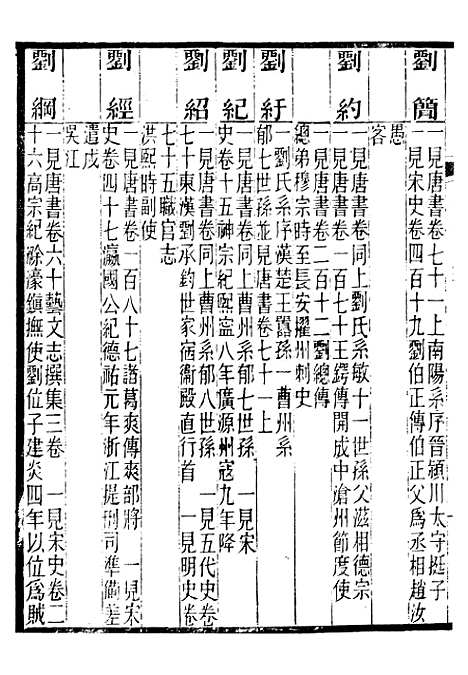 劉簡
一見唐書卷七十一上南陽系序晉潁川太守挺子
一見宋史卷四百十九劉伯正傳伯正父爲丞相趙汝
愚
客
劉約
一見唐書卷同上劉氏系敏十一世孫父滋相德宗
一見唐書卷一百七十王鍔傳開成中滄州節度使
總弟穆宗時至長安擢州刺史
一見唐書卷二百十二劉總傳
劉紆
一劉氏系序漢楚王囂孫一曹州系
郁七世孫並見唐書卷七十一上
劉紀
一見唐書卷同上曹州系郁七世孫 一見宋
史卷十五神宗紀熙寧八年廣源州寇九年降
劉紹
一見唐書卷同上曹州系郁八世孫 一見五代史卷
七十東漢劉承鈞世家宿衞殿直行首 一見明史卷
七十五職官志
洪熙時副使
劉經
一見唐書卷一百八十七諸葛爽傳爽部將 一見宋
史卷四十七瀛國公紀德祐元年浙江提刑司準備差
遣戍
吳江
劉綱
一見唐書卷六十藝文志撰集三卷 一見宋史卷二
十六高宗紀滁濠鎮撫使劉位子建炎四年以位爲賊